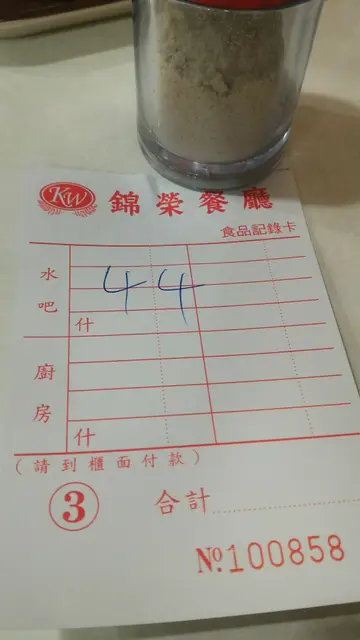 KW 錦榮餐廳
食品記錄卡
水吧
44
什
廚房
什
(請到櫃面付款)
3 合計
№ 100858